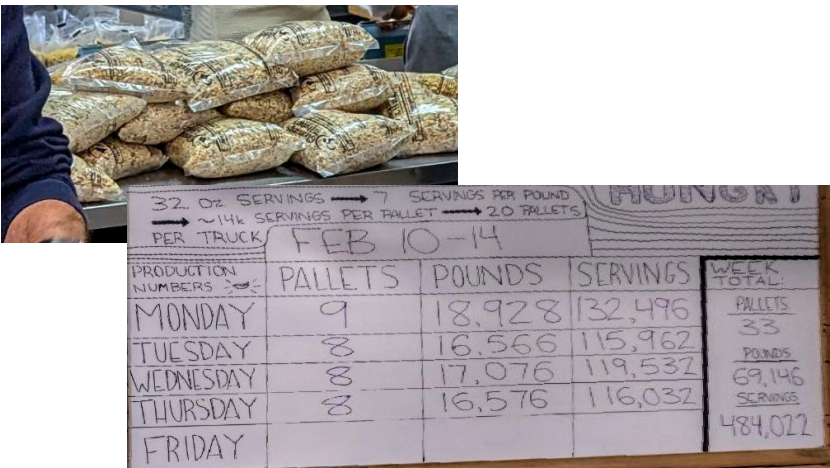 HUNGRY
32. OZ SERVINGS → 7 SERVINGS PER POUND
→ ~14K SERVINGS PER PALLET → 20 PALLETS
PER TRUCK
FEB 10-14
PRODUCTION NUMBERS PALLETS POUNDS SERVINGS
MONDAY 9 18,928 132,496
TUESDAY 8 16,566 115,962
WEDNESDAY 8 17,076 119,532
THURSDAY 8 16,576 116,032
FRIDAY
WEEK
TOTAL:
PALLETS
33
POUNDS
69,146
SERVINGS
484,022